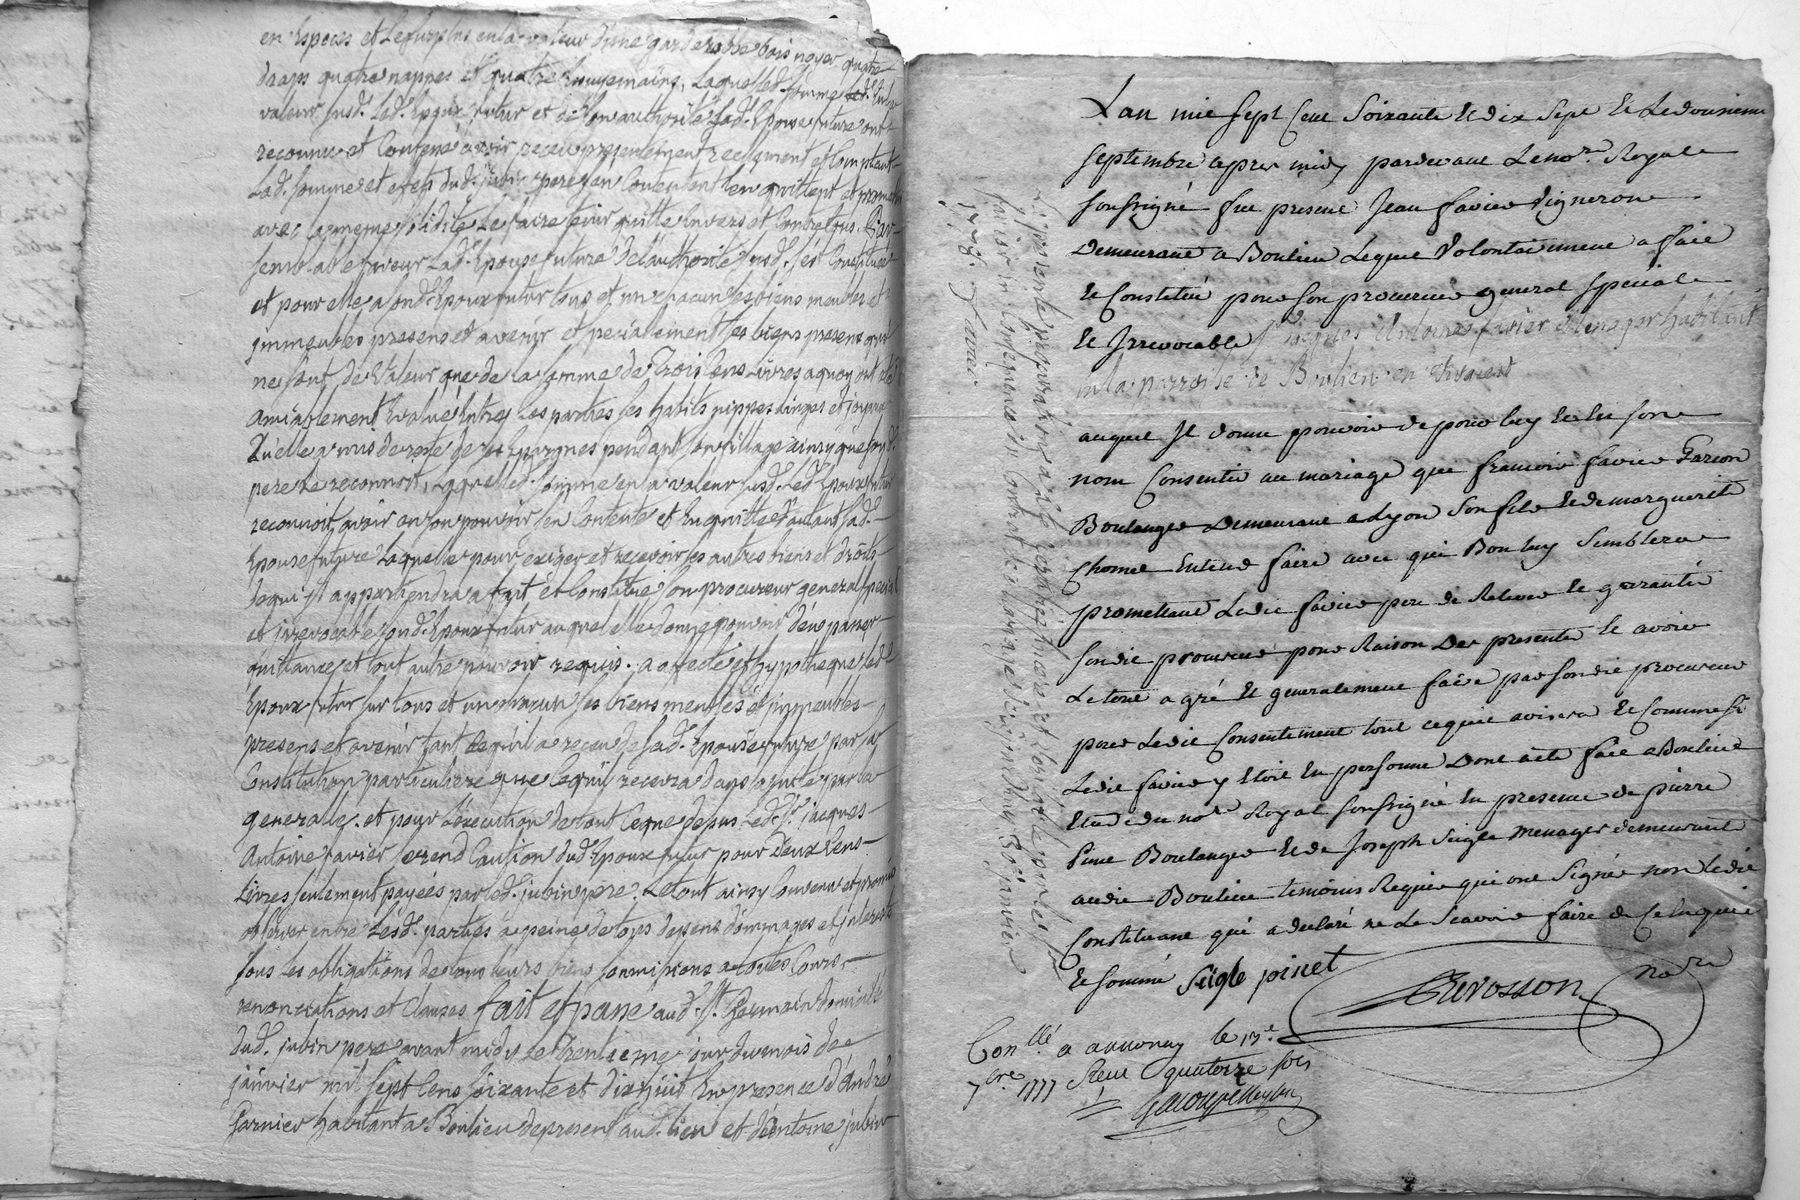 en Especes et Lesurplus enla valeur d'une garderobe bois noyer quatre
draps quatre nappes et quatre Essuyemains, Laquelled. somme
valeur susd. Led. Epoux futur et de son authorité Lad. Epouse future ont
reconnu et Confessé avoir receu presentement reellement et Comptant
Lad. somme et effets dud. jubin pere s'en Contentent l'en quittent et promettent
avec la meme solidité Le faire tenir quitte Envers et Contre tous. Par
semblable faveur Lad. Epouse future de l'authorité susd. s'est Constituée
et pour elle a sond. Epoux futur tous et un chacun ses biens meubles et
jmmeubles presens et avenir et specialement ses biens presens qui
ne sont de Valeur que de la somme de Trois Cens Livres a quoy ont eté
amiablement Evalué Entre Les parties ses habits nippes Linges et joyaux
Qu'elle a mis de reste de ses Epargnes pendant son fillage ainsy que sond.
pere Le reconnoit, Laquelled. somme en la valeur susd. Led. Epoux futur
reconnoit avoir en son pouvoir s'en Contente et En quitte d'autant Lad.
Epouse future Laquelle pour exiger et recevoir les autres biens et droits
de qui jl appartiendra a fait et Constitué son procureur general special
et jrrevocable sond. Epoux futur auquel elle donne pouvoir d'en passer
quittance et tout autre pouvoir requis. a affecté et hypotheque led.
Epoux futur sur tous et un chacun ses biens meubles et jmmeubles
presens et avenir tant ce qu'il a receu de Lad. Epouse future par sa
Constitution particuliere que ce qu'il recevra dans la suite par la
generalle. et pour L'execution de tout Ceque dessus Led. Sr. jacques
Antoine favier se rend Caution dud. Epoux futur pour Deux Cens
Livres seulement payées par led. jubin pere. Letout ainsy Convenu et promis
observer entre Lesd. parties a peine de tous depens dommages et jnterests
sous les obligations de tous leurs biens soumissions a toutes Cours
renonciations et Clauses fait et passé aud. St. Germain domicile
dud. jubin pere avant midy le trentieme jour du mois de
janvier mil sept Cens soixante et dixhuit En presence d'André
Garnier habitant a Boulieu de present aud. lieu et d'Antoine jubin
Lan mil sept Cent Soixante et dix sept et Le douzieme
septembre apres midy pardevant Le nore. Royal
soussigné fut present Jean favier Vigneron
Demeurant a Boulieu Lequel Volontairement a fait
et Constitué pour son procureur general special
et Irrevocable Sr jacques Antoine favier Menager habitant
en la parroisse de Boulieu en Vivarest
auquel Il donne pouvoir de pour luy et En son
nom Consentir au mariage que francois favier Garcon
Boulanger Demeurant a Lyon Son fils et de marguerite
Chomel Entend faire avec qui Bon luy Semblera
promettant Ledit favier pere de Relever et garantir
Sondit procureur pour Raison des presentes et avoir
Le tout a gré et generalement faire par sondit procureur
pour Ledit Consentement tout ce quil avisera et Comme Si
Ledit favier y etoit En personne Dont acte fait a Boulieu
Etude du nore. Royal Soussigné En presence de pierre
Pinet Boulanger et de Joseph Seigle menager demeurant
audit Boulieu temoins Requis qui ont Signé non Ledit
Constituant qui a declaré ne Le Scavoir faire de Ce Enquis
et sommé Seigle pinet
nore
Conllé a annonay le 13e
7bre 1777 Receu quatorze sols
La presente procuration a été
1778. favier